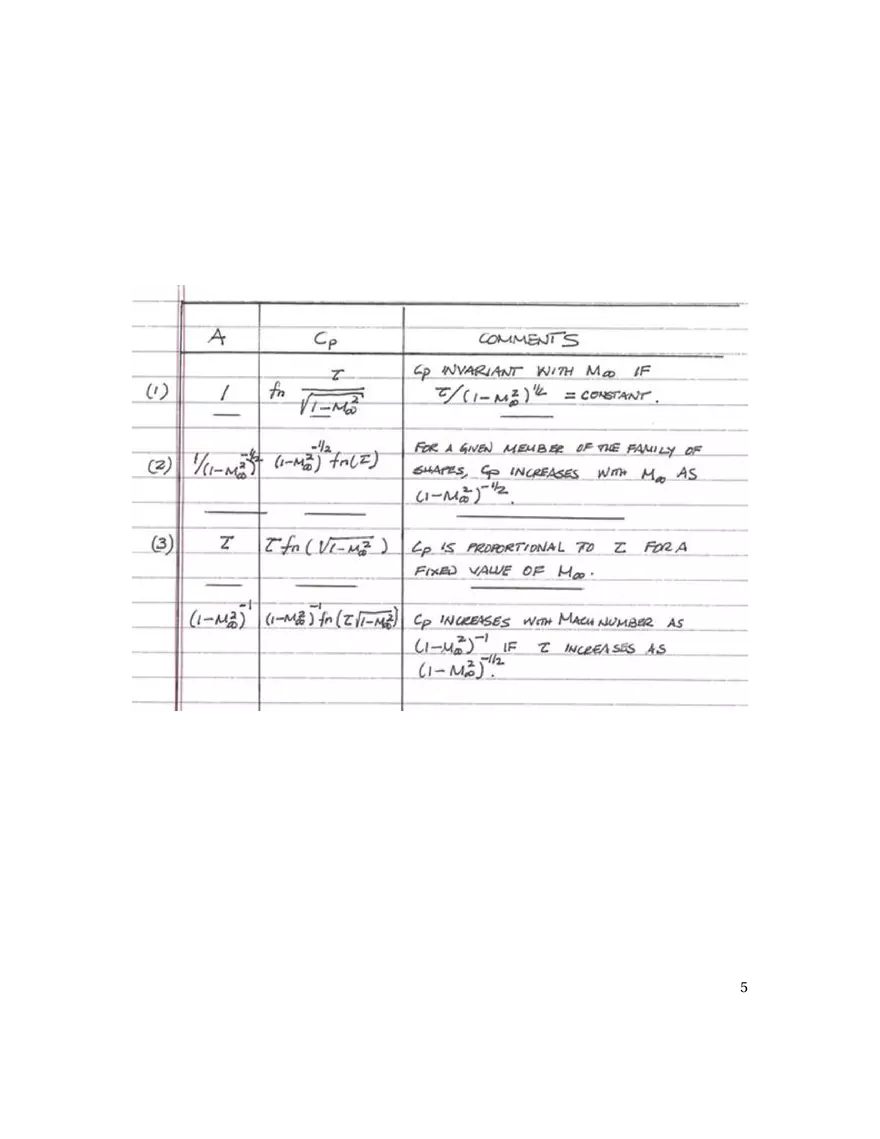 A Cp COMMENTS
(1) 1 fn τ/√(1-M∞²) Cp INVARIANT WITH M∞ IF
τ/(1-M∞²)^1/2 = CONSTANT.
(2) 1/(1-M∞²)^-1/2 (1-M∞²)^-1/2 fn(τ) FOR A GIVEN MEMBER OF THE FAMILY OF
SHAPES, Cp INCREASES WITH M∞ AS
(1-M∞²)^-1/2.
(3) τ τ fn(√(1-M∞²)) Cp IS PROPORTIONAL TO τ FOR A
FIXED VALUE OF M∞.
(1-M∞²)^-1 (1-M∞²)^-1 fn(τ√(1-M∞²)) Cp INCREASES WITH MACH NUMBER AS
(1-M∞²)^-1 IF τ INCREASES AS
(1-M∞²)^-1/2.
5